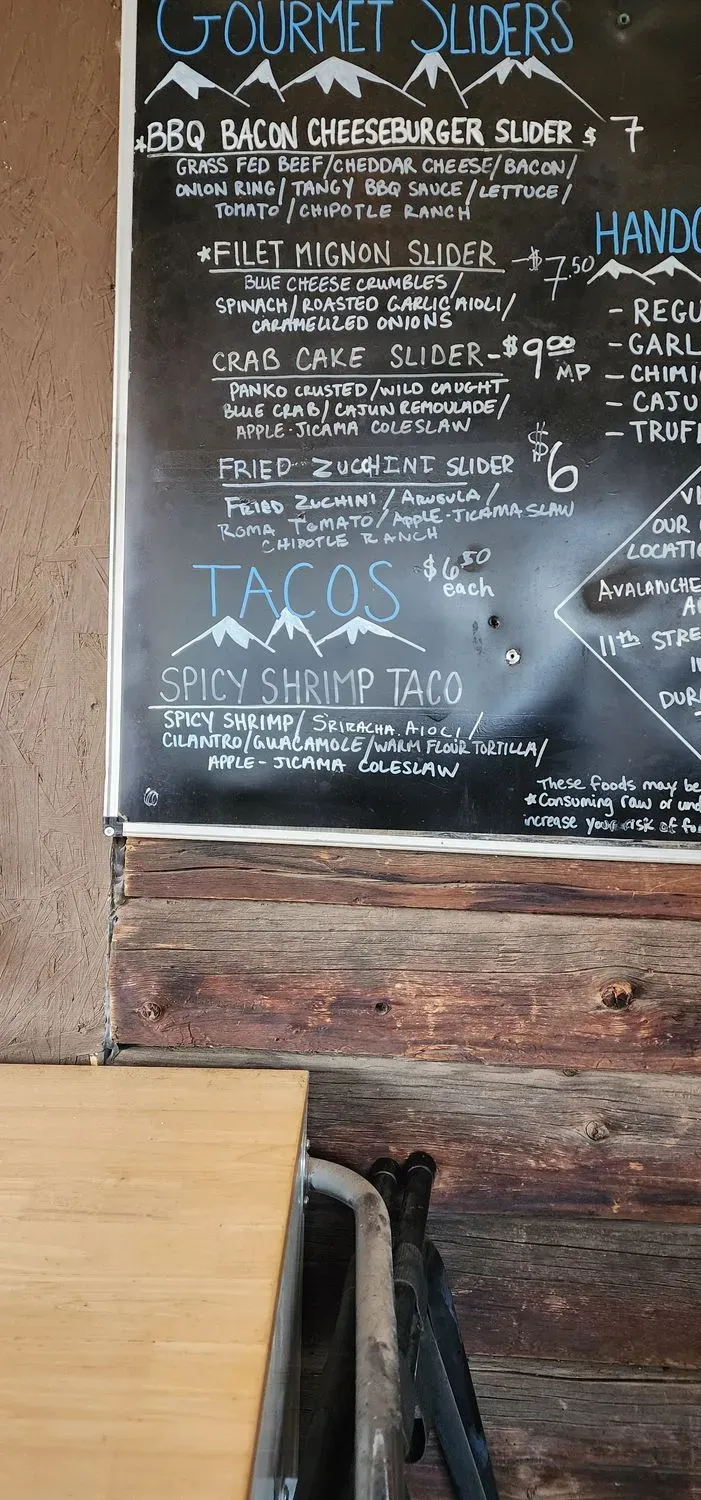 GOURMET SLIDERS
*BBQ BACON CHEESEBURGER SLIDER $7
GRASS FED BEEF/CHEDDAR CHEESE/BACON/
ONION RING/TANGY BBQ SAUCE/LETTUCE/
TOMATO/CHIPOTLE RANCH
*FILET MIGNON SLIDER -$7.50
BLUE CHEESE CRUMBLES/
SPINACH/ROASTED GARLIC AIOLI/
CARAMELIZED ONIONS
CRAB CAKE SLIDER-$9.00
MP
PANKO CRUSTED/WILD CAUGHT
BLUE CRAB/CAJUN REMOULADE/
APPLE-JICAMA COLESLAW
FRIED ZUCCHINI SLIDER $6
FRIED ZUCHINI/ARUGULA/
ROMA TOMATO/APPLE-JICAMA SLAW
CHIPOTLE RANCH
TACOS $6.50
each
SPICY SHRIMP TACO
SPICY SHRIMP/SRIRACHA AIOLI/
CILANTRO/GUACAMOLE/WARM FLOUR TORTILLA/
APPLE-JICAMA COLESLAW
HANDC
- REGU
- GARL
- CHIMI
- CAJU
- TRUF
VI
OUR
LOCATI
AVALANCHE
A
11th STRE
I
DUR
These foods may be
*Consuming raw or und
increase your risk of fo